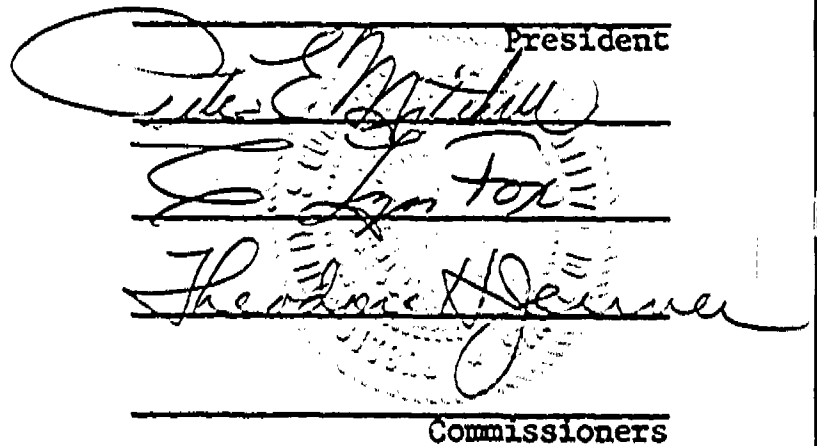 President
E. Mitchell
E Lynn Fox
Theodore H. Jenner
Commissioners